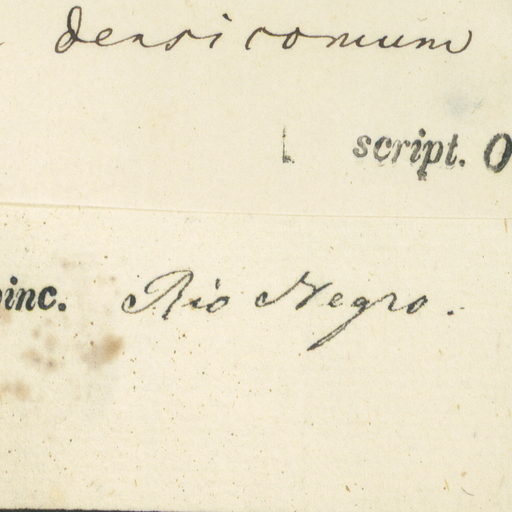 densicomum
script. O
inc. Rio Negro.